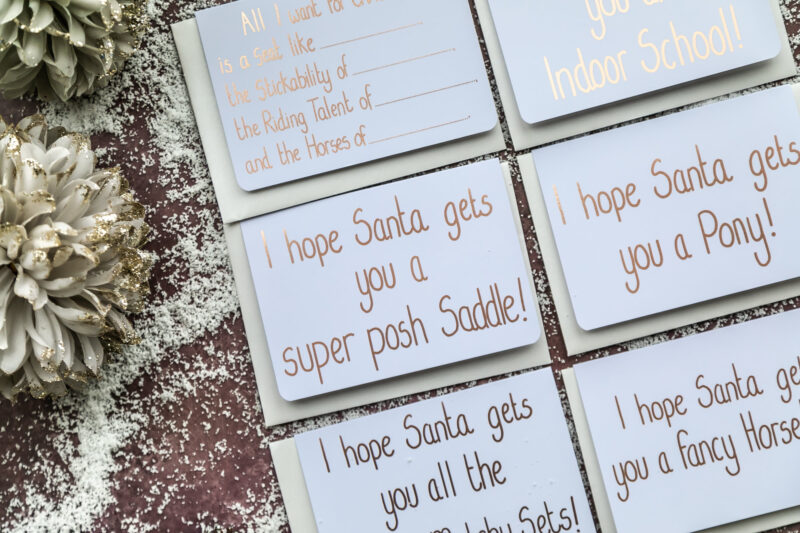 All I want for
is a Seat like
the Stickability of
the Riding Talent of
and the Horses of
you a
Indoor School!
I hope Santa gets
you a
super posh Saddle!
I hope Santa gets
you a Pony!
I hope Santa gets
you all the
Sets!
I hope Santa
you a fancy Horse